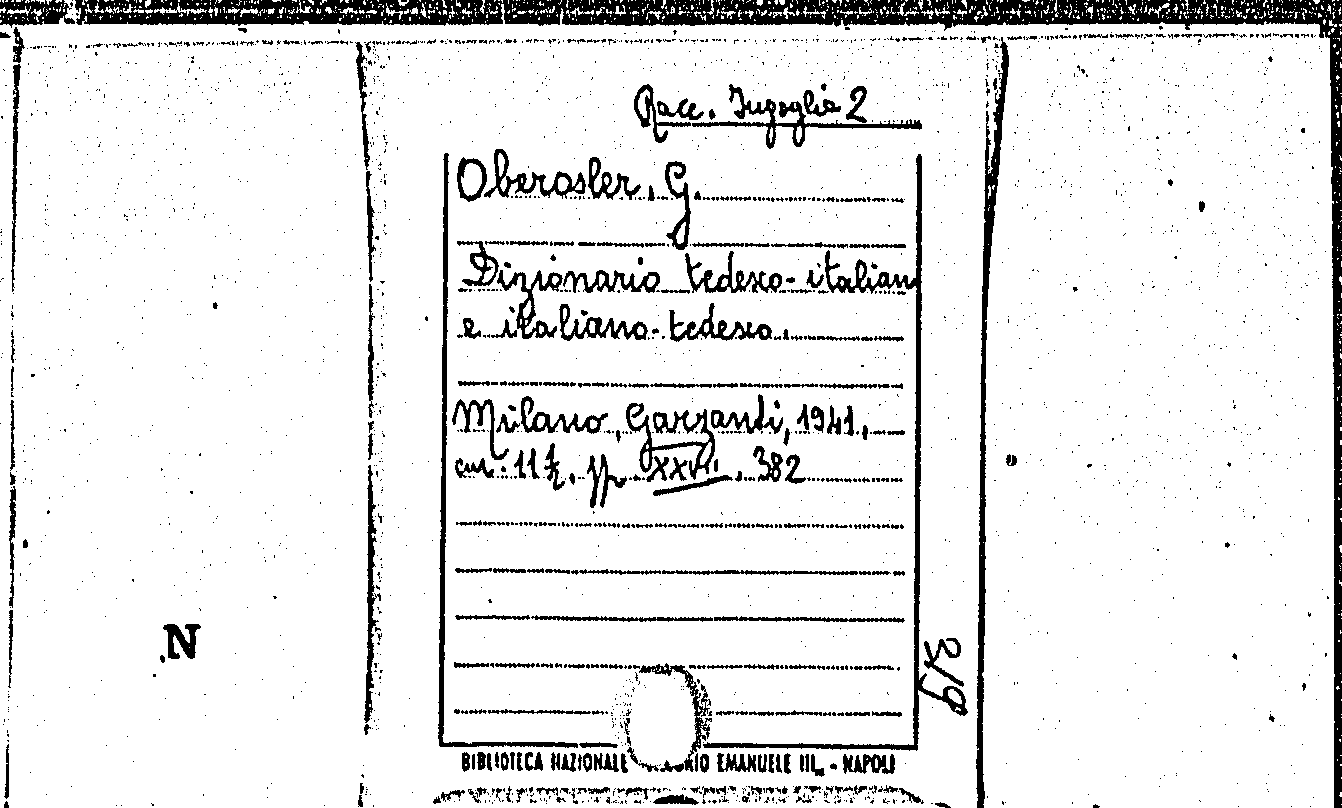 Racc. Jugoglia 2
Oberosler, G.
Dizionario tedesco-italian
e italiano-tedesco.
Milano, Garzanti, 1941,
cm. 11½, pp. XXVII, 382
N
3/9
BIBLIOTECA NAZIONALE EMANUELE III - NAPOLI